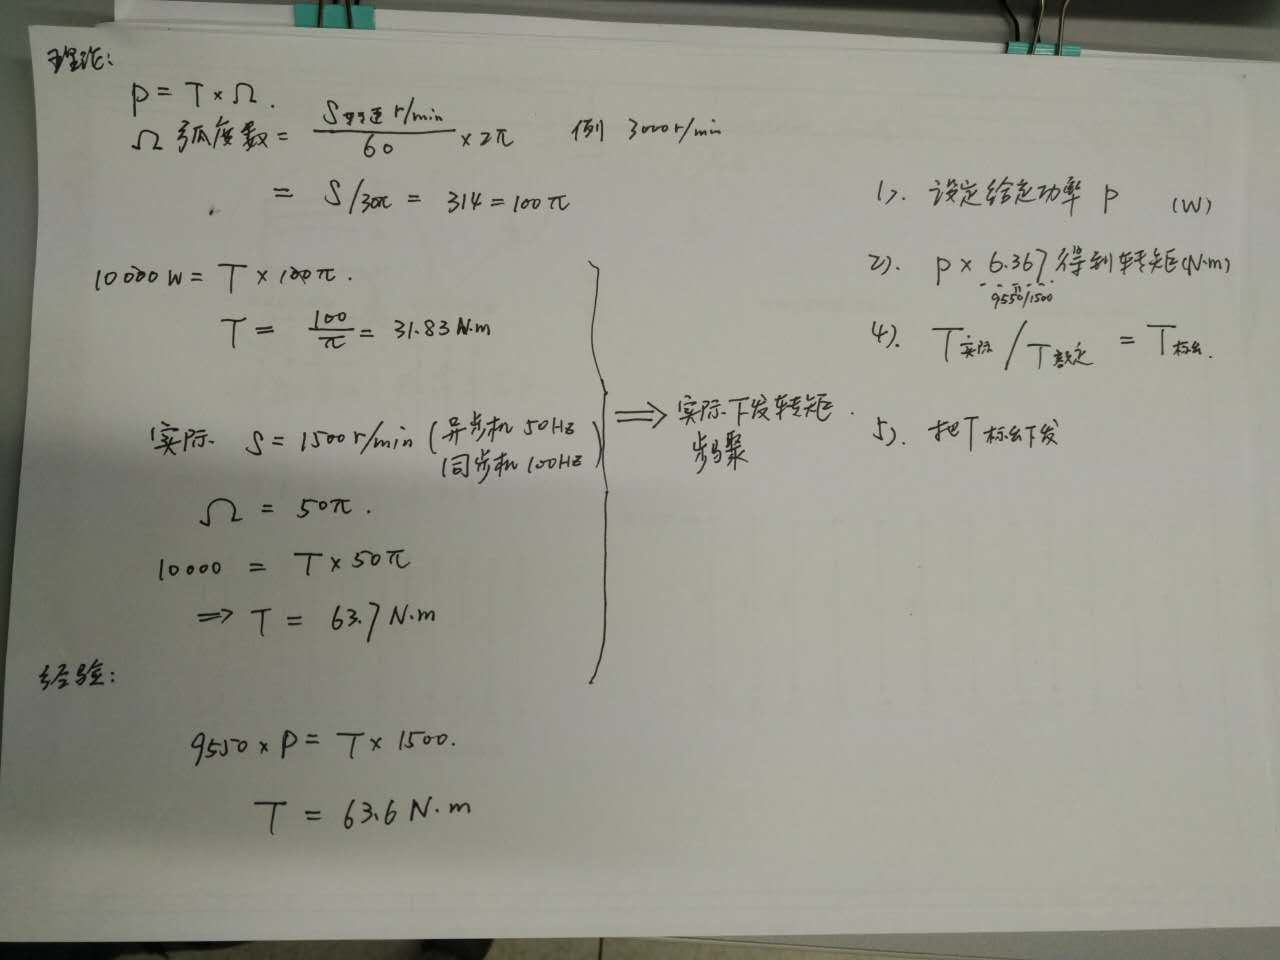 理论:
P = T × Ω.
Ω 弧度数 = S转速 r/min / 60 × 2π 例 3000r/min
= S/30π = 314 = 100π
10000W = T × 100π.
T = 100/π = 31.83 N·m
实际 S = 1500r/min (异步机 50Hz
同步机 100Hz)
Ω = 50π.
10000 = T × 50π
⇒ T = 63.7 N·m
经验:
9550 × P = T × 1500.
T = 63.6 N·m
⇒ 实际下发转矩
步骤
1). 设定给定功率 P (W)
2). P × 6.367 得到转矩(N·m)
9550/1500
4). T实际 / T额定 = T标幺.
5). 把T标幺下发